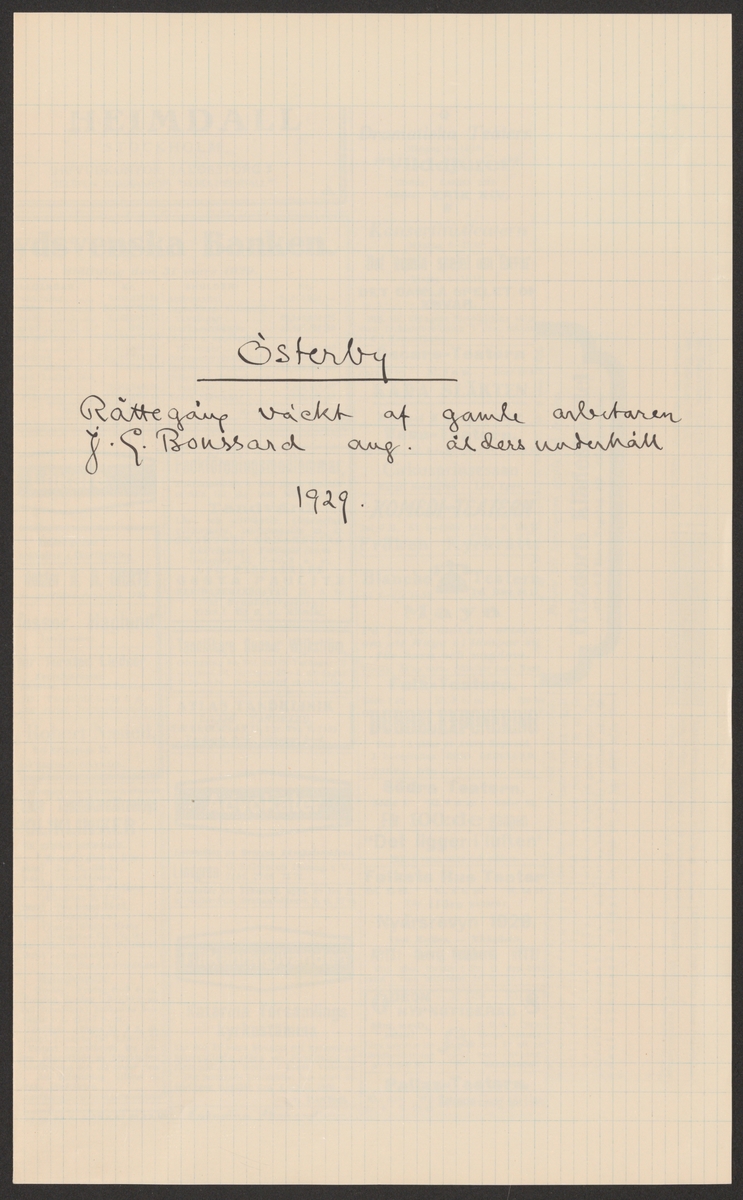 Österby
Rättegång väckt af gamle arbetaren
J. G. Boussard ang. ålders underhåll
1929.